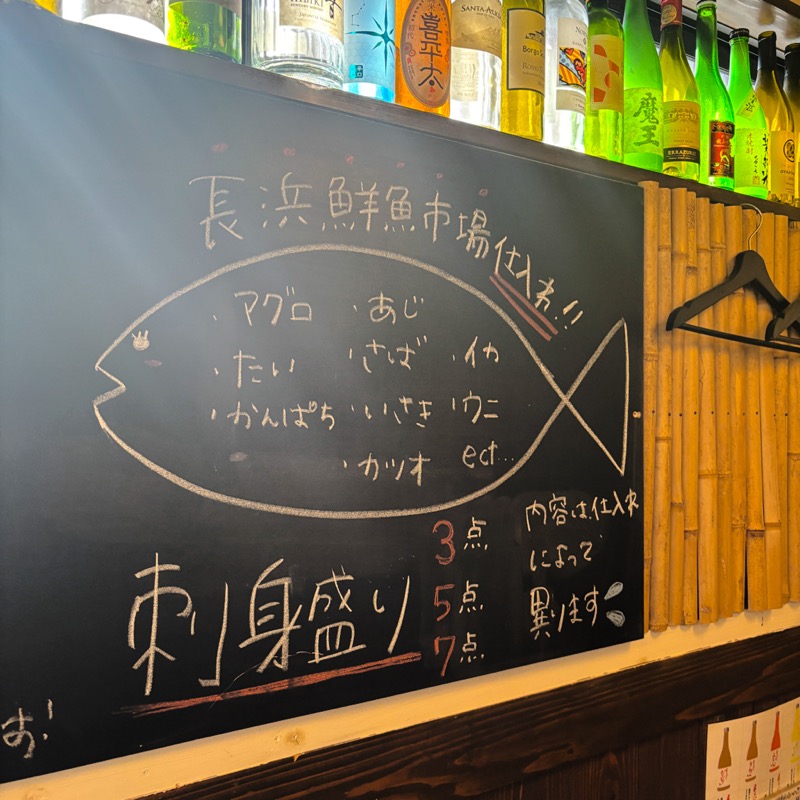 喜平太
SANTA
魔王
ERRAZURIZ
長浜鮮魚市場仕入れ!!
・マグロ ・あじ
・たい ・さば ・イカ
・かんぱち ・いさき ・ウニ
・カツオ ect...
刺身盛り
3点
5点
7点
内容は仕入れ
によって
異ります
す!